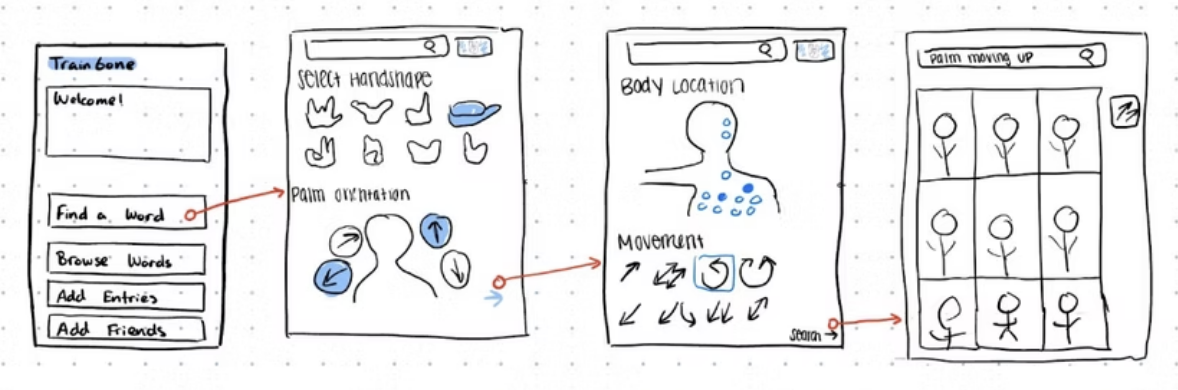 Trainbone
Welcome!
Find a Word
Browse Words
Add Entries
Add Friends
Select Handshape
Palm orientation
Body Location
Movement
search
palm moving up